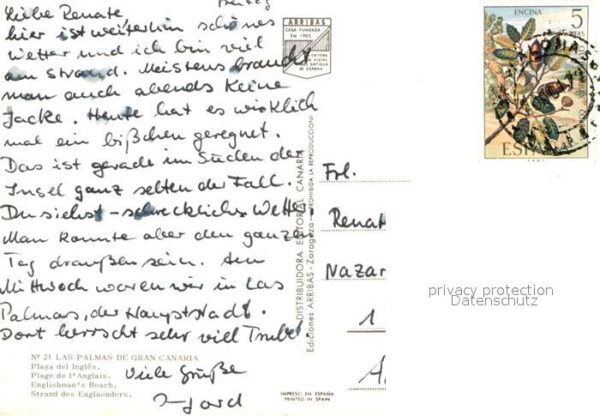 Freitag
Liebe Renate
hier ist weiterhin schönes
Wetter und ich bin viel
am Strand. Meistens braucht
man auch abends keine
Jacke. Heute hat es wirklich
mal ein bißchen geregnet.
Das ist gerade im Süden der
Insel ganz selten der Fall.
Du siehst - schreckliches Wetter.
Man konnte aber den ganzen
Tag draußen sein. Am
Mittwoch waren wir in Las
Palmas, der Hauptstadt.
Dort herrscht sehr viel Trubel.
Viele Grüße
Nº 21 LAS PALMAS DE GRAN CANARIA
Playa del Inglés.
Plage de l'Anglais.
Englishman's Beach.
Strand des Englaenders.
ARRIBAS
CASA FUNDADA
EN 1905
DISTRIBUIDORA EDITORIAL CANARIA
Ediciones ARRIBAS - Zaragoza - PROHIBIDA LA REPRODUCCION
IMPRESO EN ESPAÑA
PRINTED IN SPAIN
ENCINA
5
PTAS
ESPAÑA
Frl.
Renat
Nazar
1
privacy protection
Datenschutz